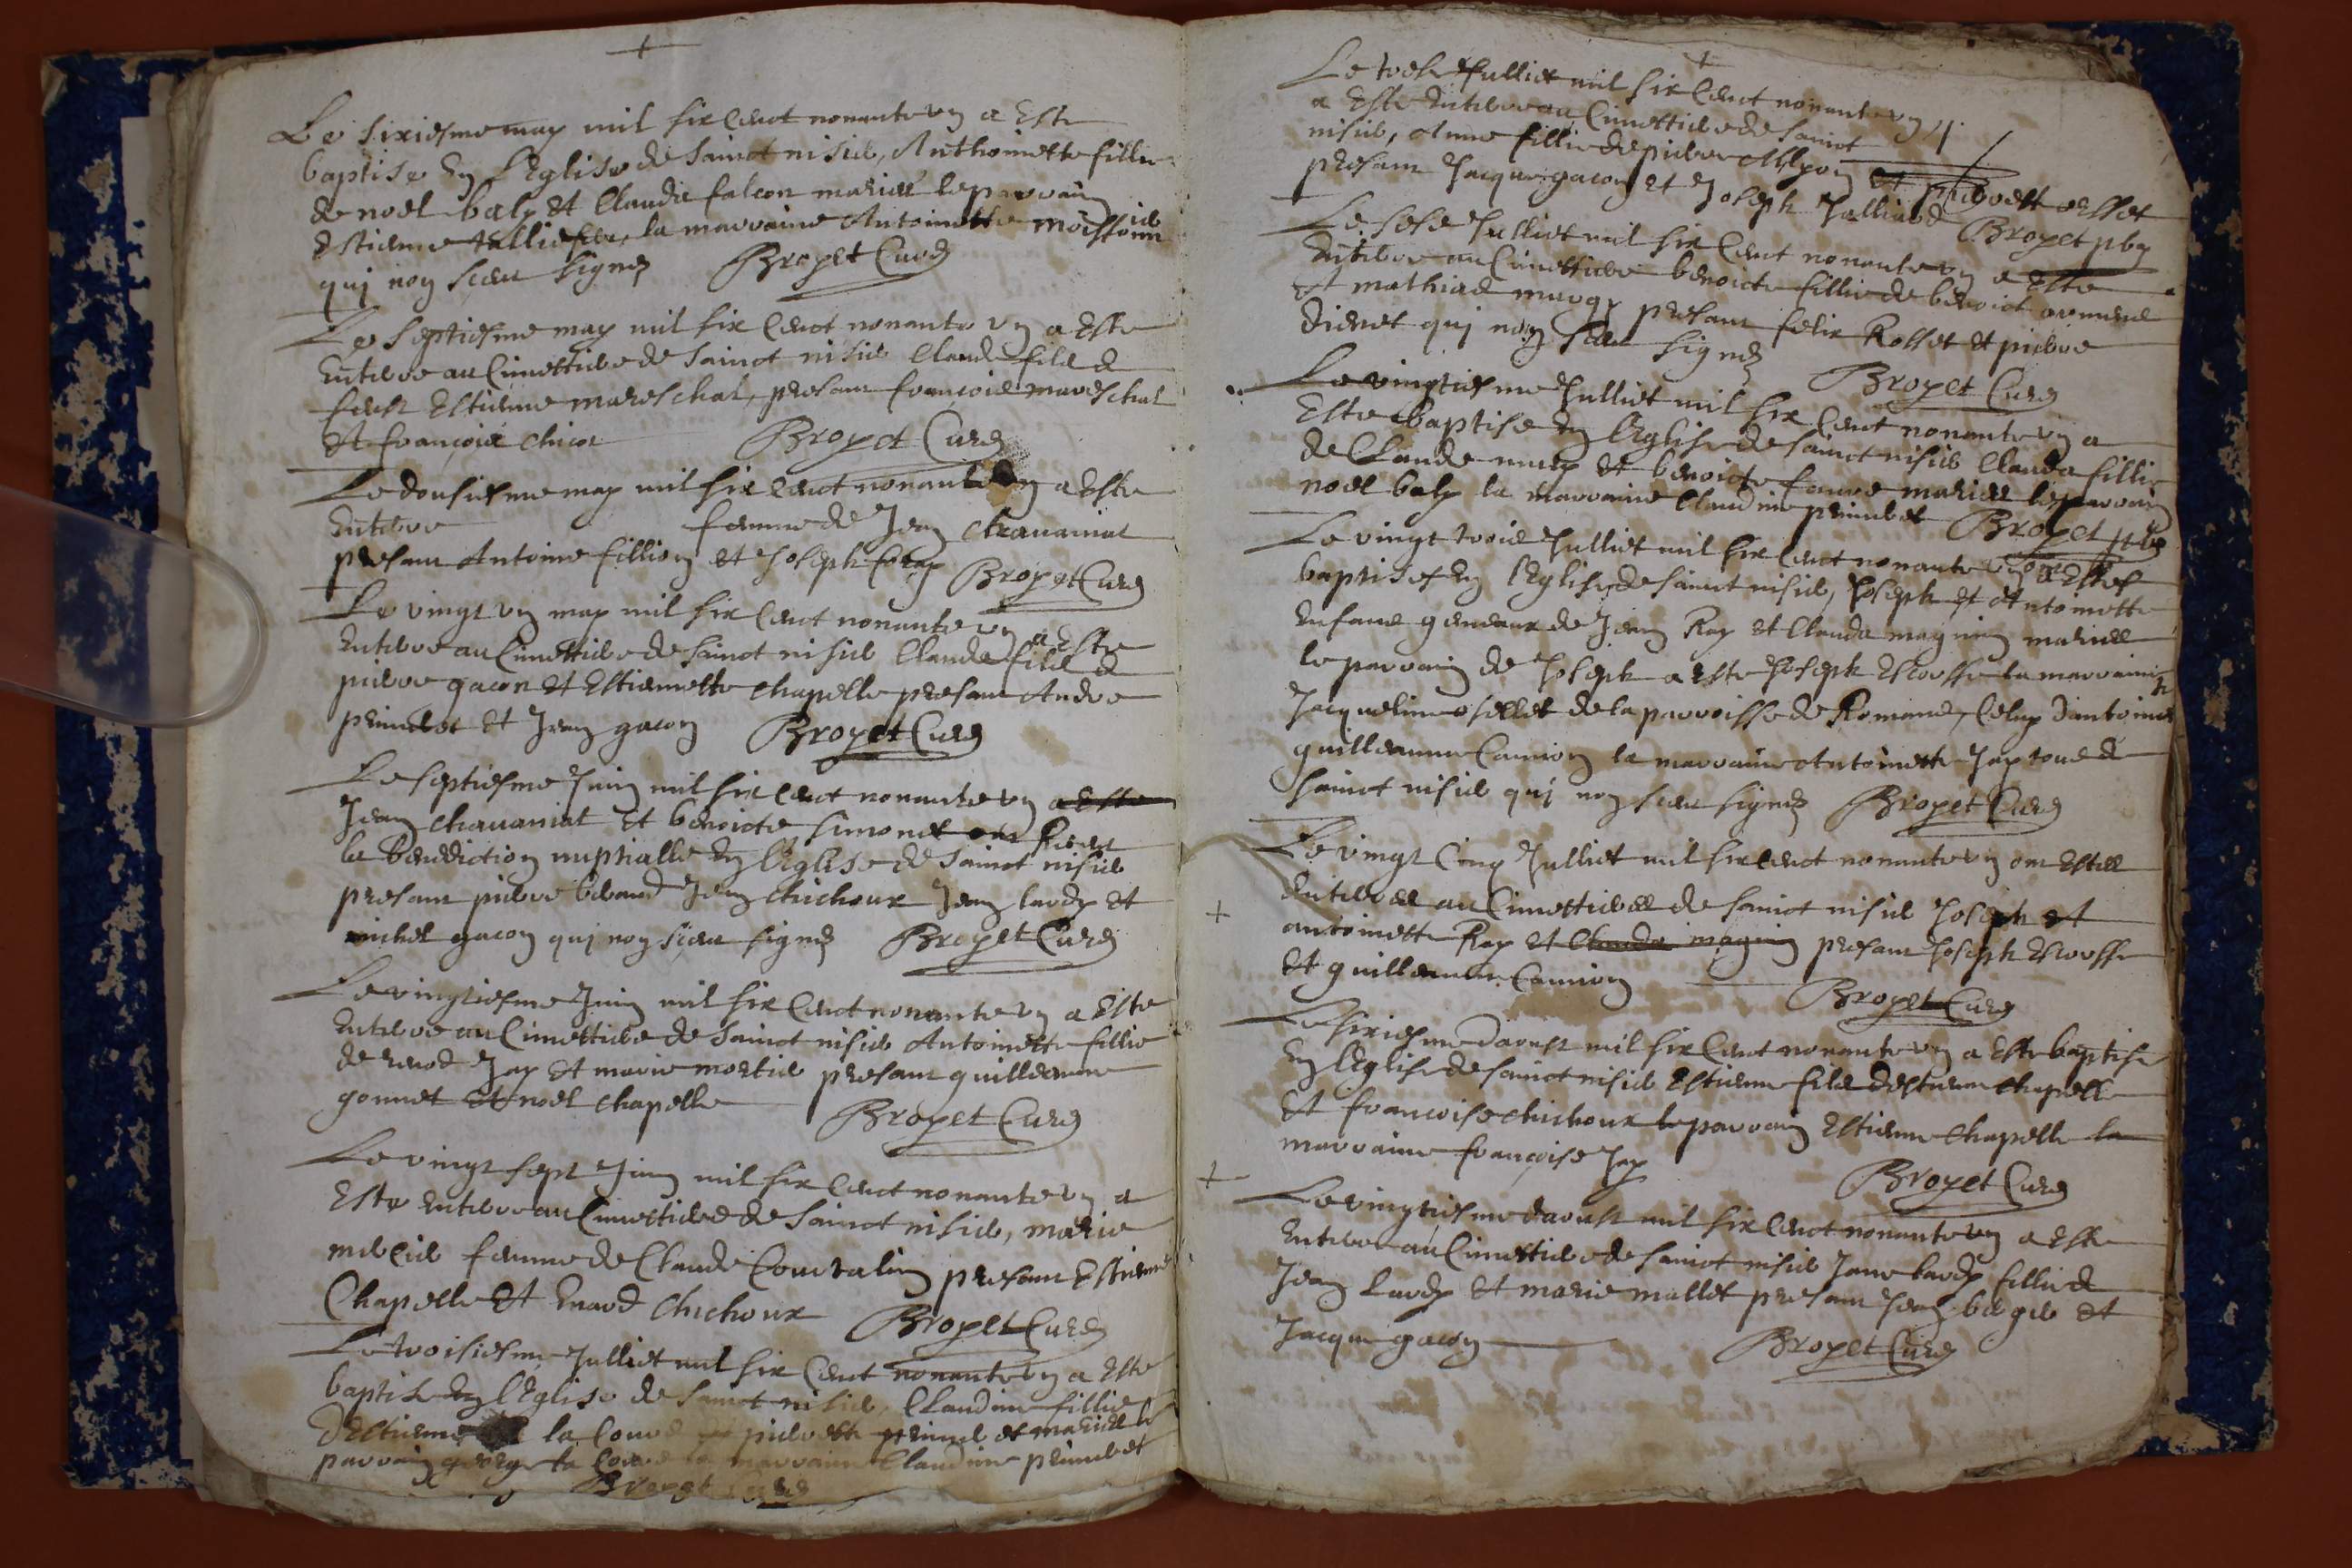 Le sixiesme may mil six cent nonante un a esté
baptisé en l'eglise de sainct nisier, Anthoinette fillie
de noel baly et Claudie falcon mariés le parrain
Estienne, la marraine Antoinette
qui non sceu signer Broyet Curé
Le septiesme may mil six cent nonante un a esté
enterre au Cimettiere de sainct nisier Claude fils de
feust Estienne mareschal, presant francois mareschal
et francois chicot Broyet Curé
Le dousiesme may mil six cent nonante un a esté
enterre femme de Jean chavaniat
presant Antoine fillion et Joseph Broyet Curé
Le vingt un may mil six cent nonante un a esté
enterre au Cimettiere de sainct nisier Claude fils de
pierre gacon et Estiennette chapelle presant Andre
prunelot et Jean gacon Broyet Curé
Le septiesme Juin mil six cent nonante un a esté
Jean chavaniat et benoicte simonet ont Receu
la benediction nuptialle en l'eglise de sainct nisier
presant pierre beraud Jean chichoux Jean lardy et
michel gacon qui non sceu signer Broyet Curé
Le vingtiesme Juin mil six cent nonante un a esté
enterre au Cimettiere de sainct nisier Antoinette fillie
de Jay et marie mortier presant guilleaume
gonnet et noel chapelle Broyet Curé
Le vingt sept Juin mil six cent nonante un a
esté enterre au Cimettiere de sainct nisier, marie
mercier femme de Claude Courtalin presant Estienne
Chapelle et Enard chichoux Broyet Curé
Le troisiesme Julliet mil six cent nonante un a esté
baptisé en l'eglise de sainct nisier, Claudine fillie
d'Estienne la Coure pierrette et mariés le
parrain george la Coure la marraine Claudine
Broyet Curé
Le Julliet mil six cent nonante un
a esté enterre au Cimettiere de sainct
nisier, Anne fillie de pierre et pierrette
presant Jacque gacon et Joseph Broyet pbr
Le sese Julliet mil six cent nonante un a esté
enterre au Cimettiere benoicte fillie de benoict
et mathiae presant felix Rosset et pierre
qui non sceu signer Broyet Curé
Le vingtiesme Julliet mil six cent nonante un a
esté baptisé en l'eglise de sainct nisier Clauda fillie
de Claude et benoicte faure mariés le parrain
noel baly la marraine Claudine Broyet
Le vingt trois Julliet mil six cent nonante un ont estés
baptises en l'eglise de sainct nisier, Joseph et Antoinette
enfans gemeaux de Jean Ray et Clauda magnin mariés
le parrain de Joseph a esté Joseph Escoffe la marraine
Jacqueline de la parroisse de Romane, Celuy d'antoinette
guilleaume Camion la marraine Antoinette Jay tous de
sainct nisier qui non sceu signer Broyet Curé
Le vingt Cinq Julliet mil six cent nonante un ont estés
enterres au Cimettieres de sainct nisier Joseph et
antoinette Ray et Clauda magnin presant Joseph Escoffe
et guilleaume Camion Broyet Curé
Le sixiesme D'aoust mil six cent nonante un a esté baptisé
en l'eglise de sainct nisier Estienne fils d'estienne chapelle
et francoise chichoux le parrain Estienne chapelle la
marraine francoise Jay Broyet Curé
Le vingtiesme d'aoust mil six cent nonante un a esté
enterre au Cimettiere de sainct nisier Jane lardy fillie de
Jean Lardy et marie mallet presant Jean berger et
Jacque gacon Broyet Curé